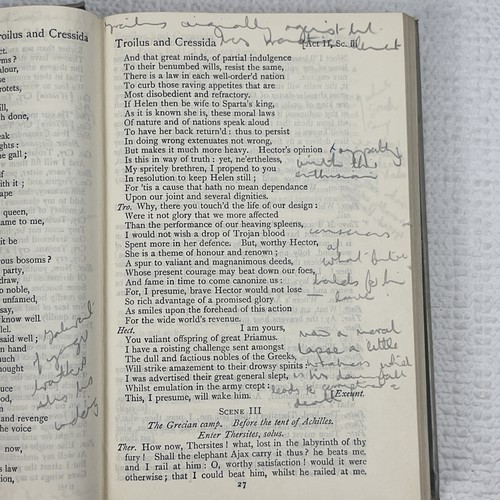 roilus and Cressida
ct.
rms?
alour,
se
rotets,
ill,
th done,
eak
ights:
he gall;
if
ith it;
ape
queen,
ame to me,
it be
rous bosoms?
party,
draw,
o noble,
unfamed,
know well
lel.
said well;
n hand
much
hought
uce
od
and revenge
he voice
now,
s law
ion
Troilus and Cressida [Act II, Sc. ii
And that great minds, of partial indulgence
To their benumbed wills, resist the same,
There is a law in each well-order'd nation
To curb those raving appetites that are
Most disobedient and refractory.
If Helen then be wife to Sparta's king,
As it is known she is, these moral laws
Of nature and of nations speak aloud
To have her back return'd: thus to persist
In doing wrong extenuates not wrong,
But makes it much more heavy. Hector's opinion
Is this in way of truth: yet, ne'ertheless,
My spritely brethren, I propend to you
In resolution to keep Helen still;
For 'tis a cause that hath no mean dependance
Upon our joint and several dignities.
Tro. Why, there you touch'd the life of our design:
Were it not glory that we more affected
Than the performance of our heaving spleens,
I would not wish a drop of Trojan blood
Spent more in her defence. But, worthy Hector,
She is a theme of honour and renown;
A spur to valiant and magnanimous deeds,
Whose present courage may beat down our foes,
And fame in time to come canonize us:
For, I presume, brave Hector would not lose
So rich advantage of a promised glory
As smiles upon the forehead of this action
For the wide world's revenue.
Hect. I am yours,
You valiant offspring of great Priamus.
I have a roisting challenge sent amongst
The dull and factious nobles of the Greeks,
Will strike amazement to their drowsy spirits:
I was advertised their great general slept,
Whilst emulation in the army crept:
This, I presume, will wake him. [Exeunt.
sympathy
with the
enthusiasm
conscious
of
what future
holds for him
was a moral
lapse a little
which
his downfall
Scene III
The Grecian camp. Before the tent of Achilles.
Enter Thersites, solus.
Ther. How now, Thersites! what, lost in the labyrinth of thy
fury! Shall the elephant Ajax carry it thus? he beats me,
and I rail at him: O, worthy satisfaction! would it were
otherwise; that I could beat him, whilst he railed at me.
27